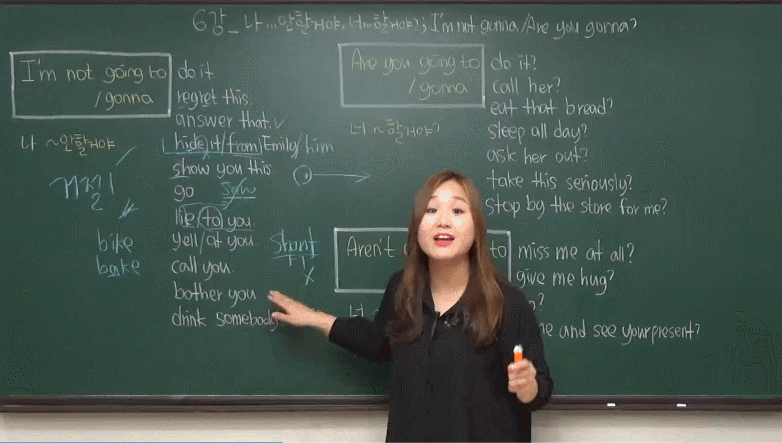 6강_ 나...안할거야, 너...할거야?; I'm not gonna/Are you gonna?
I'm not going to
/gonna
나 ~안할거야
do it.
regret this.
answer that.
hide it/from Emily/him
show you this.
go
lie to you.
yell/at you.
call you.
bother you
drink somebody
bike
bake
Are you going to
/gonna
너 ~할거야?
do it?
call her?
eat that bread?
sleep all day?
ask her out?
take this seriously?
stop by the store for me?
Aren't
to
너
miss me at all?
give me hug?
and see your present?